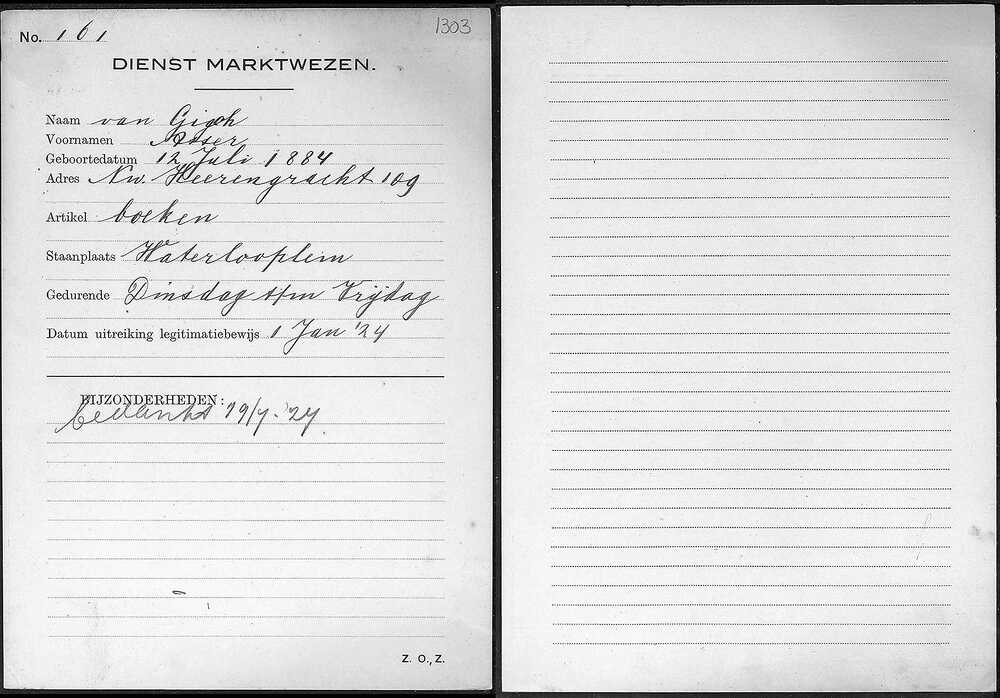 1303
No. 161
DIENST MARKTWEZEN.
Naam van Gigch
Voornamen Asser
Geboortedatum 12 Juli 1884
Adres Nw. Heerengracht 109
Artikel boeken
Staanplaats Waterlooplein
Gedurende Dinsdag t/m Vrijdag
Datum uitreiking legitimatiebewijs 1 Jan '24
BIJZONDERHEDEN:
bedankt 19/7-'27
Z. O., Z.